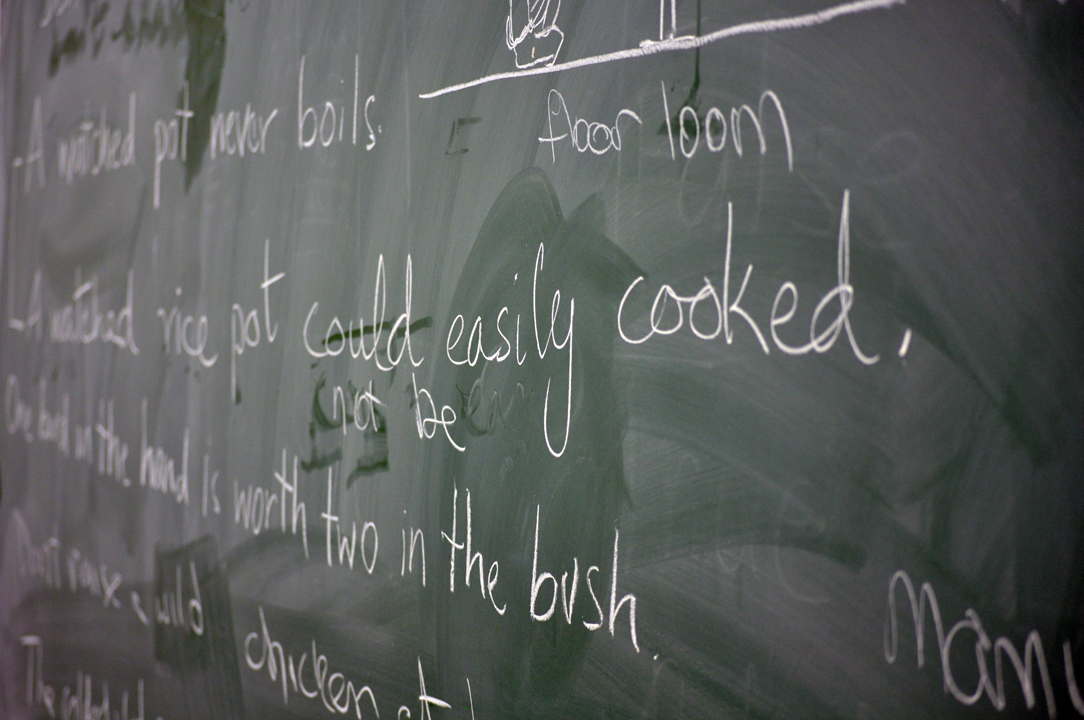 -A watched pot never boils.
floor loom
-A watched rice pot could easily cooked.
not be
One bird in the hand is worth two in the bush.
wild chicken
Manu